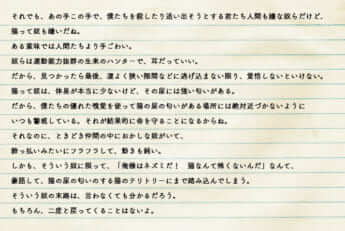 それでも、あの手この手で、僕たちを殺したり追い出そうとする君たち人間も嫌な奴らだけど、
猫って奴も嫌いだね。
ある意味では人間たちより手ごわい。
奴らは運動能力抜群の生来のハンターで、耳だっていい。
だから、見つかったら最後、運よく狭い隙間などに逃げ込まない限り、覚悟しないといけない。
猫って奴は、体臭が本当に少ないけど、その尿には強い匂いがある。
だから、僕たちの優れた嗅覚を使って猫の尿の匂いがある場所には絶対近づかないように
いつも警戒している。それが結果的に命を守ることになるからね。
それなのに、ときどき仲間の中におかしな奴がいて、
酔っ払いみたいにフラフラして、動きも鈍い。
しかも、そういう奴に限って、「俺様はネズミだ！　猫なんて怖くないんだ」なんて、
豪語して、猫の尿の匂いのする猫のテリトリーにまで踏み込んでしまう。
そういう奴の末路は、言わなくても分かるだろう。
もちろん、二度と戻ってくることはないよ。